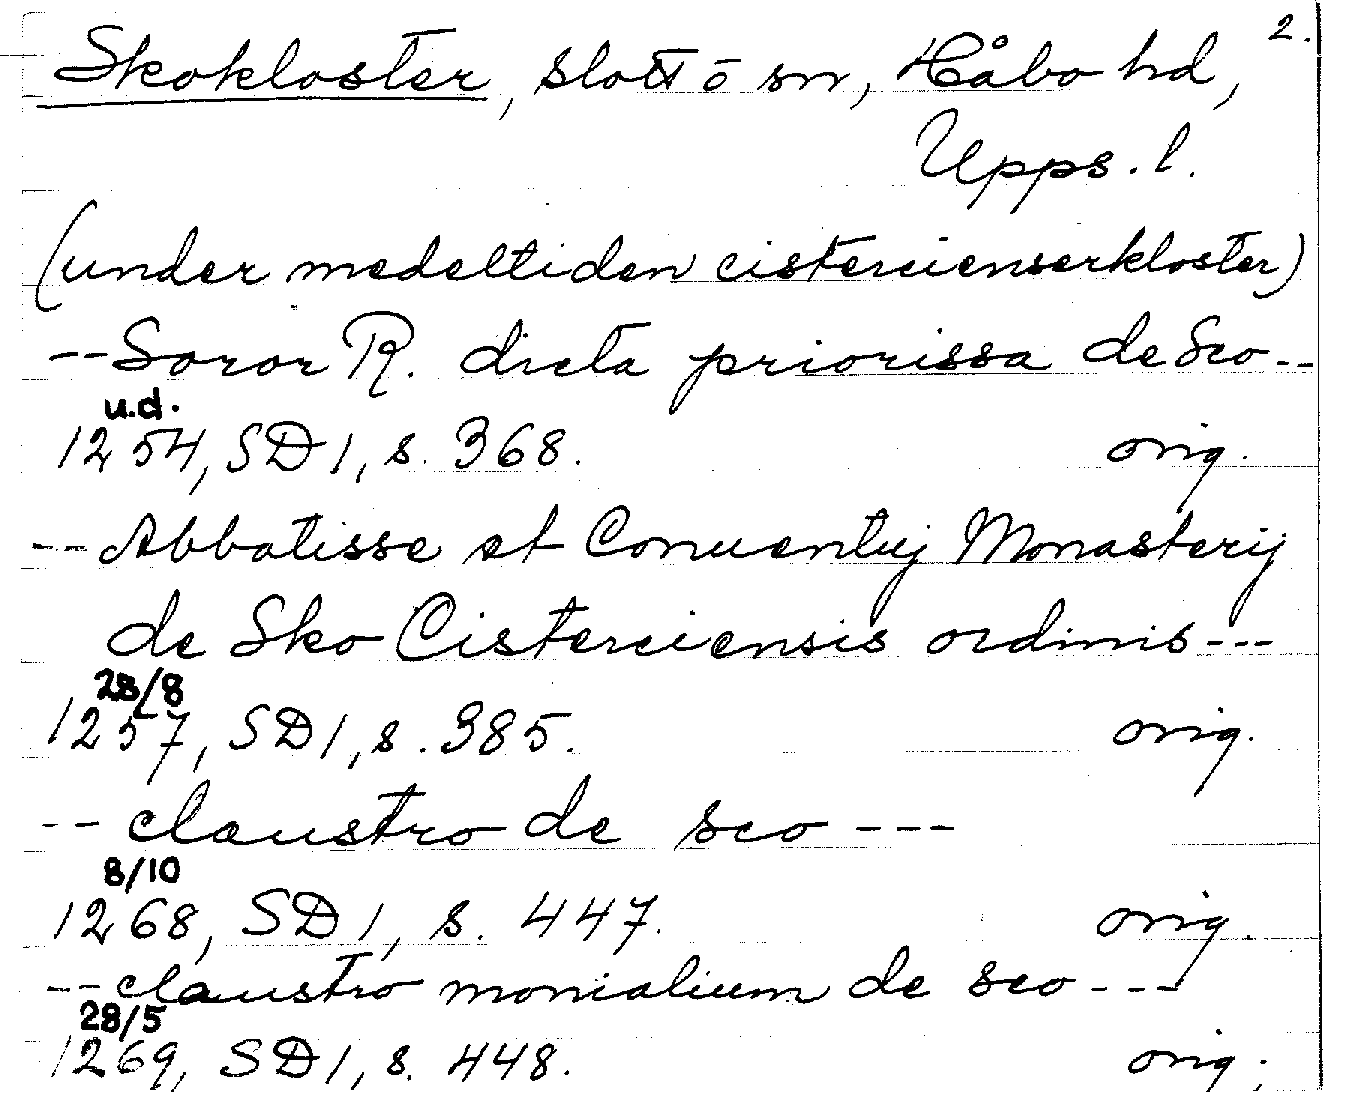 2.
Skokloster, slott o sn, Håbo hd,
Upps. l.
(under medeltiden cistercienserkloster)
-- Soror R. dicta priorissa de Sco --
u.d.
1254, SD 1, s. 368. orig.
-- Abbatisse et Conuentuj Monasterij
de Sko Cisterciensis ordinis ---
28/8
1257, SD 1, s. 385. orig.
-- claustro de sco ---
8/10
1268, SD 1, s. 447. orig.
-- claustro monialium de sco ---
28/5
1269, SD 1, s. 448. orig.